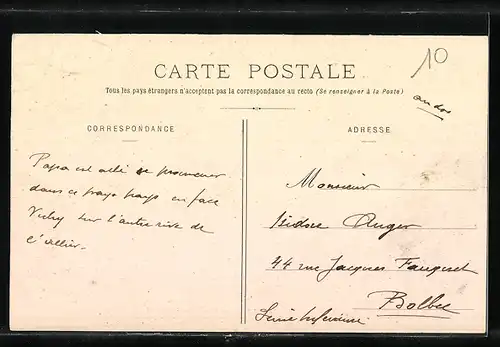 10
CARTE POSTALE
Tous les pays étrangers n'acceptent pas la correspondance au recto (Se renseigner à la Poste)
au dos
CORRESPONDANCE
ADRESSE
Papa est allé se promener
dans ce pays pays en face
Vichy sur l'autre rive de
l'allier.
Monsieur
Isidore Auger
44 rue Jacques Fauquet
Bolbec
Seine Inférieure